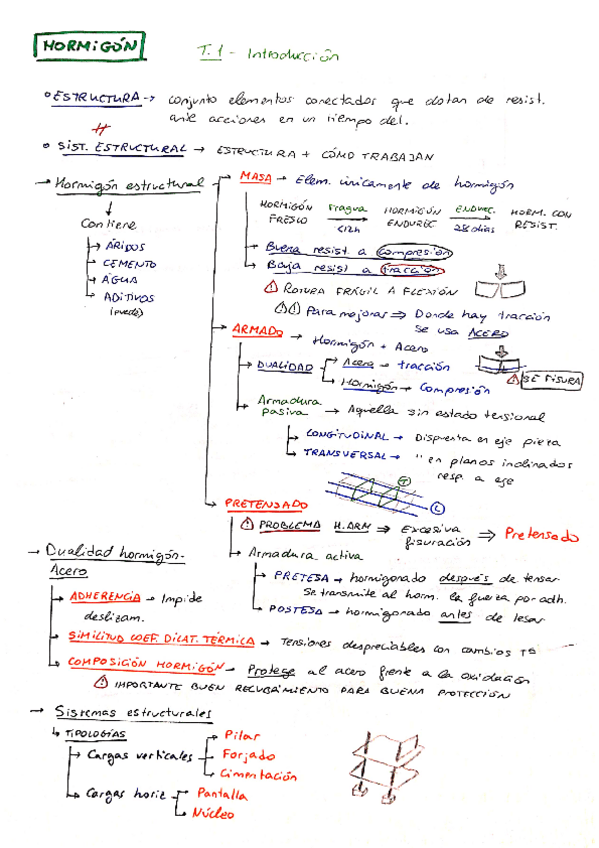 HORMIGÓN
T.1 - Introducción
ESTRUCTURA → conjunto elementos conectados que dotan de resist.
ante acciones en un tiempo det.
SIST. ESTRUCTURAL → ESTRUCTURA + CÓMO TRABAJAN
→ Hormigón estructural
Contiene
→ ÁRIDOS
→ CEMENTO
→ AGUA
→ ADITIVOS
(puede)
MASA → Elem. únicamente de hormigón
HORMIGÓN FRESCO
Fragua
<12h
HORMIGÓN ENDUREC.
ENDUREC.
28 días
HORM. CON RESIST.
→ Buena resist. a compresión
→ Baja resist a tracción
ROTURA FRÁGIL A FLEXIÓN
Para mejorar ⇒ Donde hay tracción
se usa ACERO
ARMADO → Hormigón + Acero
→ DUALIDAD
Acero → tracción
Hormigón → Compresión
SE FISURA
→ Armadura pasiva → Aquella sin estado tensional
→ LONGITUDINAL → Dispuesta en eje pieza
→ TRANSVERSAL → " en planos inclinados
resp. a eje
T
L
PRETENSADO
PROBLEMA H.ARM ⇒ Excesiva fisuración ⇒ Pretensado
→ Armadura activa
→ PRETESA → hormigonado después de tensar
Se transmite al horm. la fuerza por adh.
→ POSTESA → hormigonado antes de tesar
→ Dualidad hormigón-
Acero
→ ADHERENCIA → Impide
deslizam.
→ SIMILITUD COEF. DILAT. TÉRMICA → Tensiones despreciables con cambios Tª
→ COMPOSICIÓN HORMIGÓN → Protege al acero frente a la oxidación
IMPORTANTE BUEN RECUBRIMIENTO PARA BUENA PROTECCIÓN
→ Sistemas estructurales
↳ TIPOLOGÍAS
→ Cargas verticales
→ Pilar
→ Forjado
→ Cimentación
→ Cargas horiz
→ Pantalla
→ Núcleo